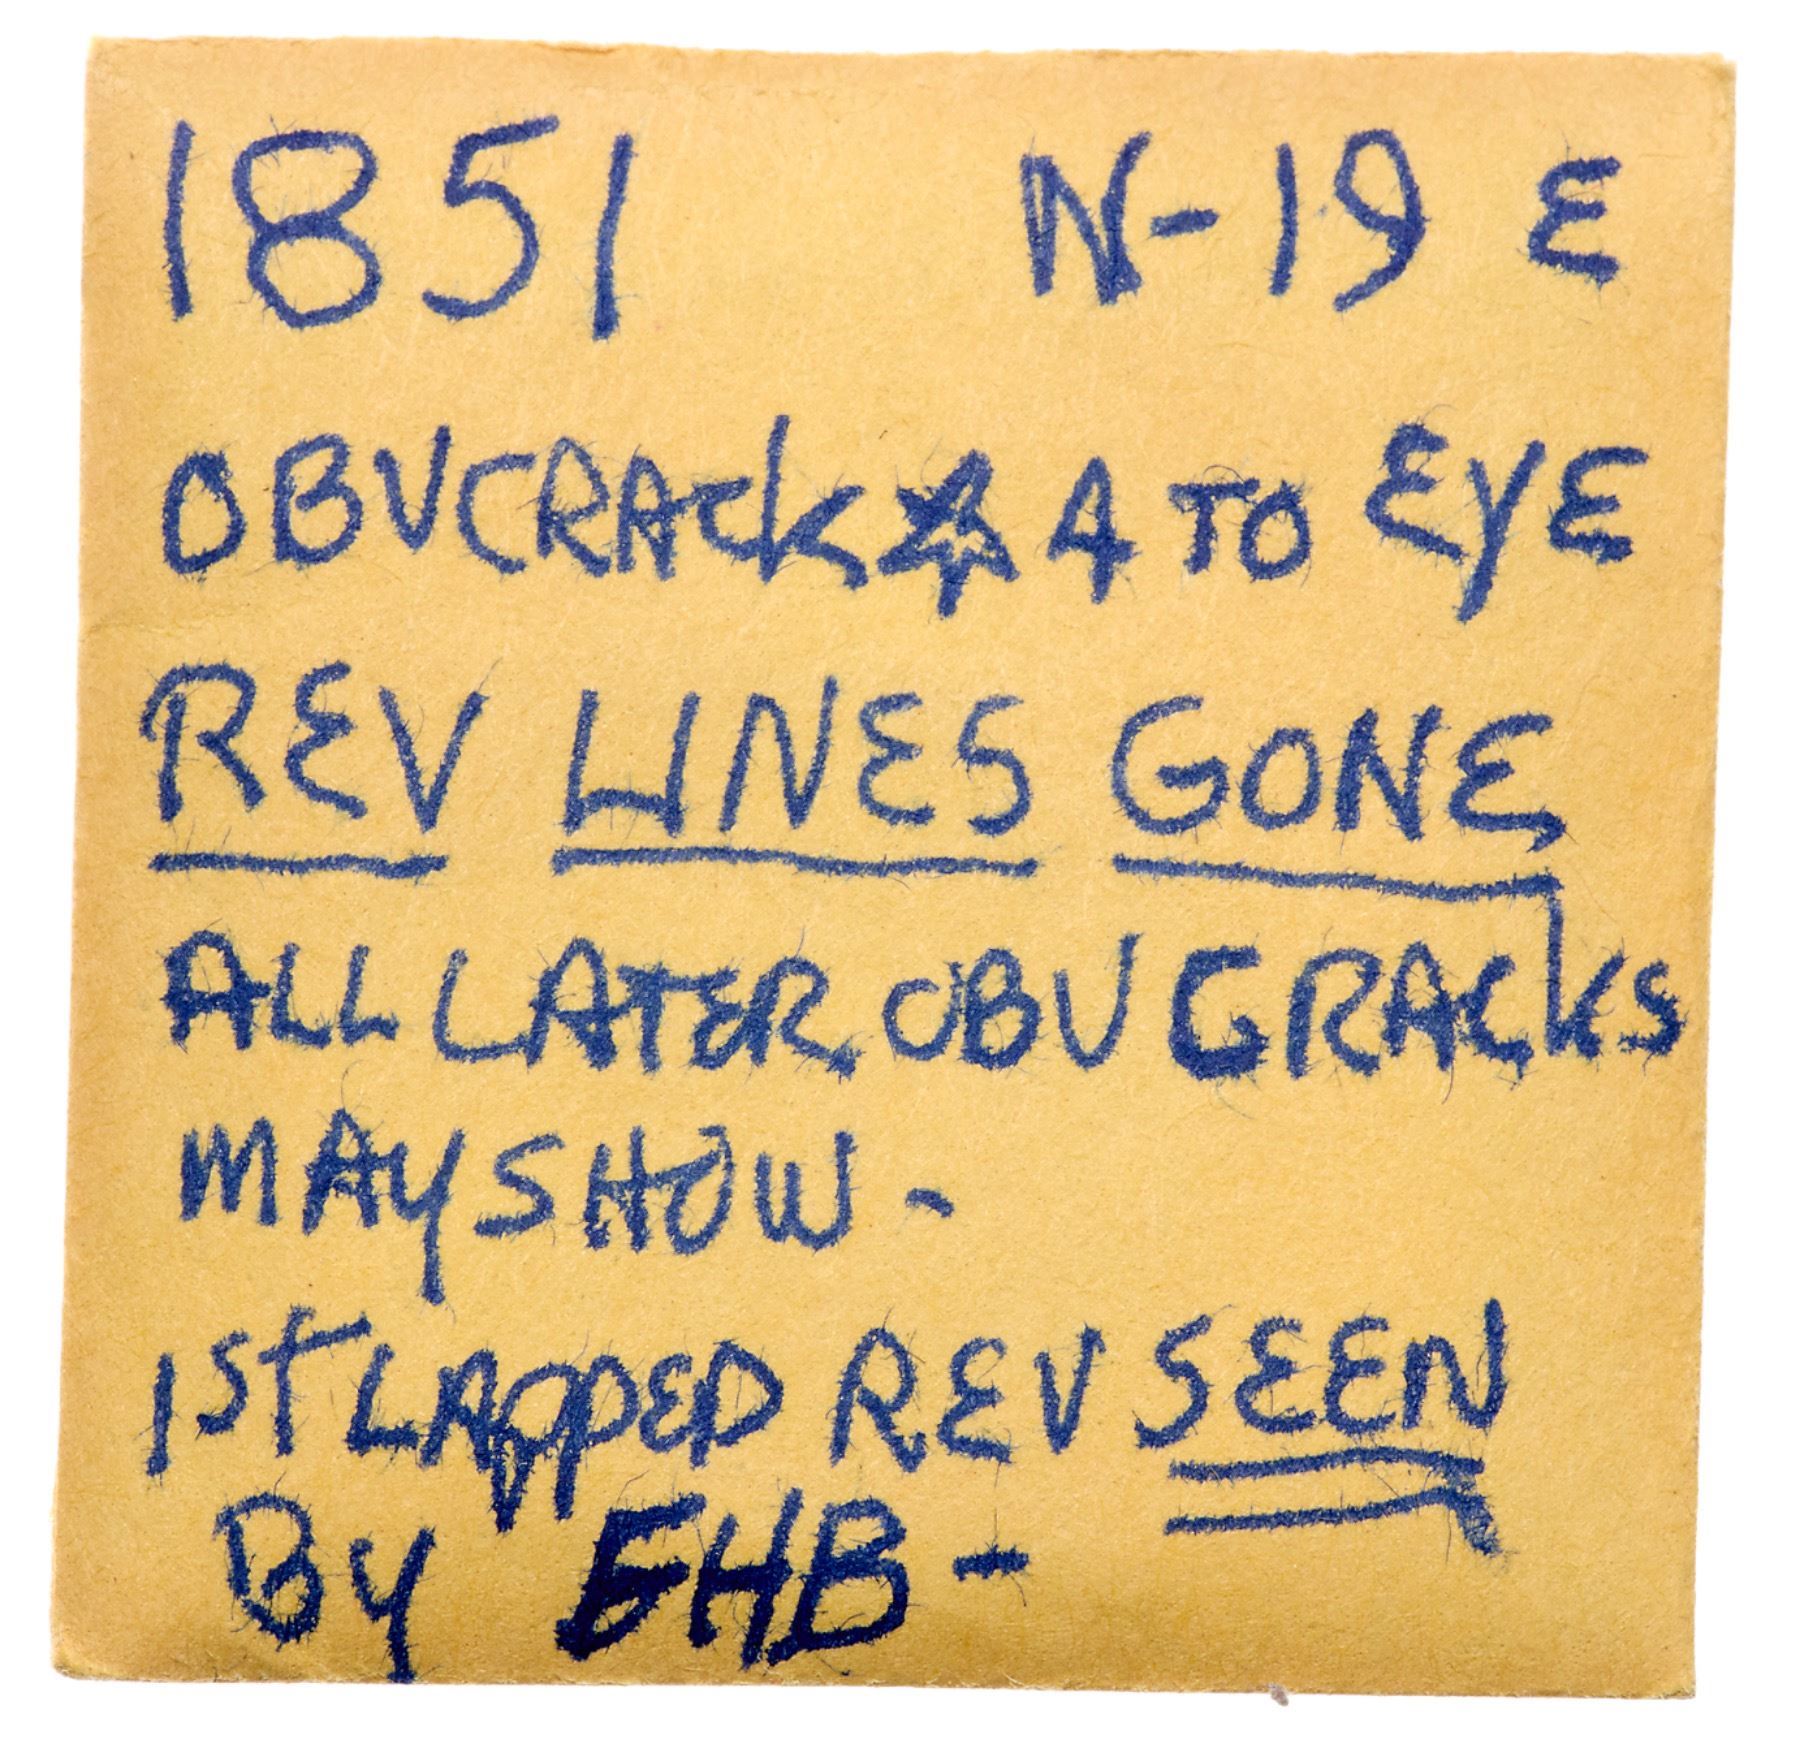 1851 N-19 E
OBV CRACK ☆ 4 TO EYE
REV LINES GONE
ALL LATER OBV CRACKS
MAY SHOW -
1ST LAPPED REV SEEN
By EHB -